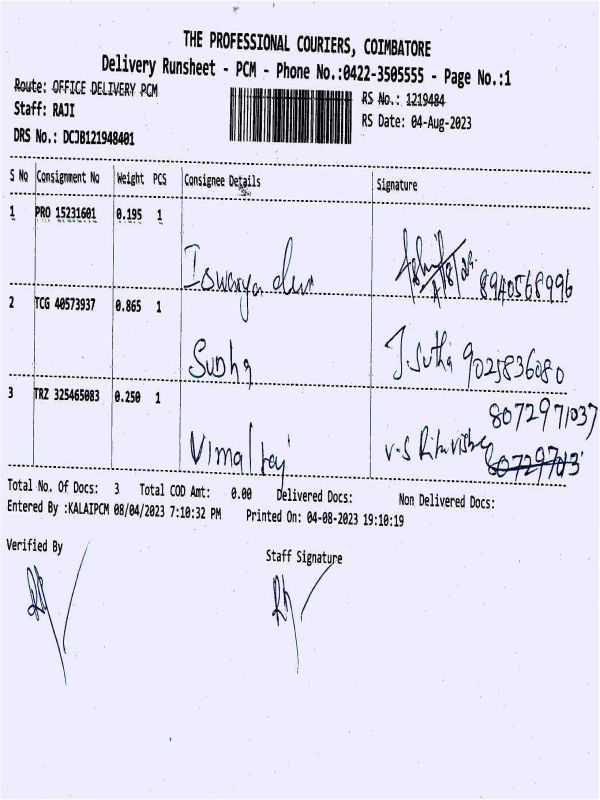 THE PROFESSIONAL COURIERS, COIMBATORE
Delivery Runsheet - PCM - Phone No.:0422-3505555 - Page No.:1
Route: OFFICE DELIVERY PCM
RS No.: 1219484
Staff: RAJI
RS Date: 04-Aug-2023
DRS No.: DCJB121948401
S No Consignment No Weight PCS Consignee Details Signature
1 PRO 15231601 0.195 1
Iswarya 8940568996
2 TCG 40573937 0.865 1
Sudha J. Sutha 9025836080
3 TRZ 325465083 0.250 1 8072971037
Vimal raj V.S
Total No. Of Docs: 3 Total COD Amt: 0.00 Delivered Docs: Non Delivered Docs:
Entered By :KALAIPCM 08/04/2023 7:10:32 PM Printed On: 04-08-2023 19:10:19
Verified By
Staff Signature